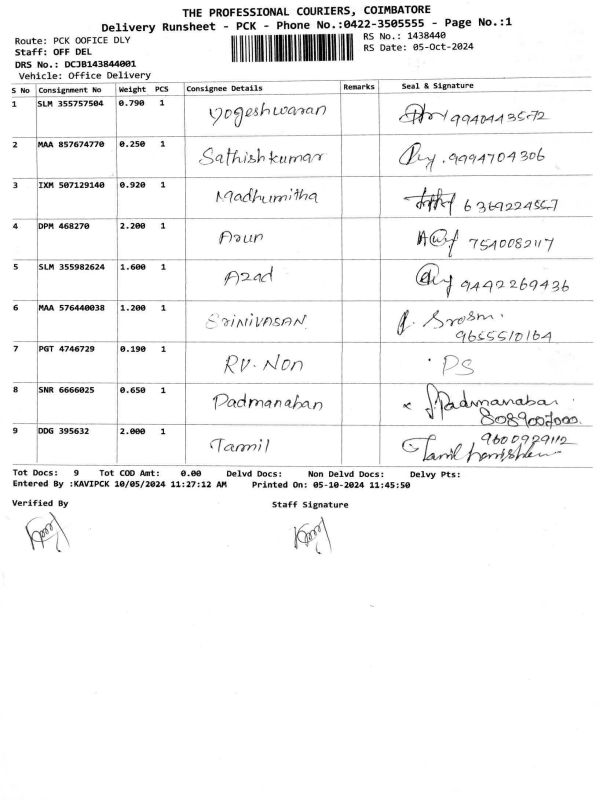 THE PROFESSIONAL COURIERS, COIMBATORE
Delivery Runsheet - PCK - Phone No.:0422-3505555 - Page No.:1
Route: PCK OOFICE DLY RS No.: 1438440
Staff: OFF DEL RS Date: 05-Oct-2024
DRS No.: DCJB143844001
Vehicle: Office Delivery
S No Consignment No Weight PCS Consignee Details Remarks Seal & Signature
1 SLM 355757504 0.790 1 Yogeshwaran 9940443572
2 MAA 857674770 0.250 1 Sathishkumar 9994704306
3 IXM 507129140 0.920 1 Madhumitha 6369224557
4 DPM 468270 2.200 1 Arun 7540082117
5 SLM 355982624 1.600 1 Azad 9442269436
6 MAA 576440038 1.200 1 SRINIVASAN
9655510164
7 PGT 4746729 0.190 1 RV. Non PS
8 SNR 6666025 0.650 1 Padmanaban Padmanaban
8089007000
9 DDG 395632 2.000 1 Tamil 9600929112
Tamil
Tot Docs: 9 Tot COD Amt: 0.00 Delvd Docs: Non Delvd Docs: Delvy Pts:
Entered By :KAVIPCK 10/05/2024 11:27:12 AM Printed On: 05-10-2024 11:45:50
Verified By Staff Signature